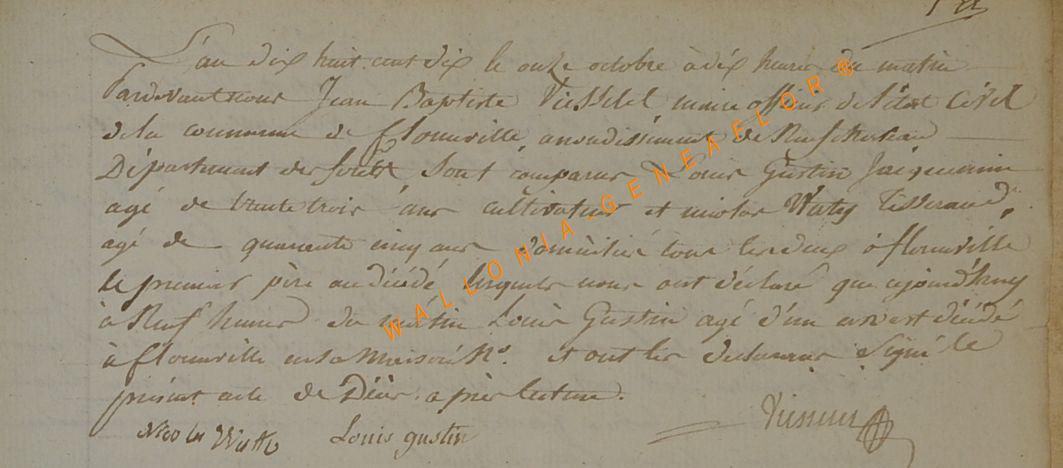 L'an dix huit cent dix le onze octobre à dix heures du matin
Pardevant nous Jean Baptiste maire officier de l'état Civil
de la commune de florenville, arrondissement de Neufchateau
Département des forêts Sont comparus Louis Gustin Jacquemin
agé de trente trois ans cultivateur et nicolas Watry Tisserand,
agé de quarante cinq ans domicilié tous les deux à florenville
le premier père au décédé lesquels nous ont déclaré que ajourd'huy
à Neuf heures du matin Louis Gustin agé d'un an est décédé
à florenville en sa Maison No. et ont les déclarants Signé le
présent acte de Décès après lecture.
Nicolas Louis gustin
WALLONIA-GENEAFLOR®